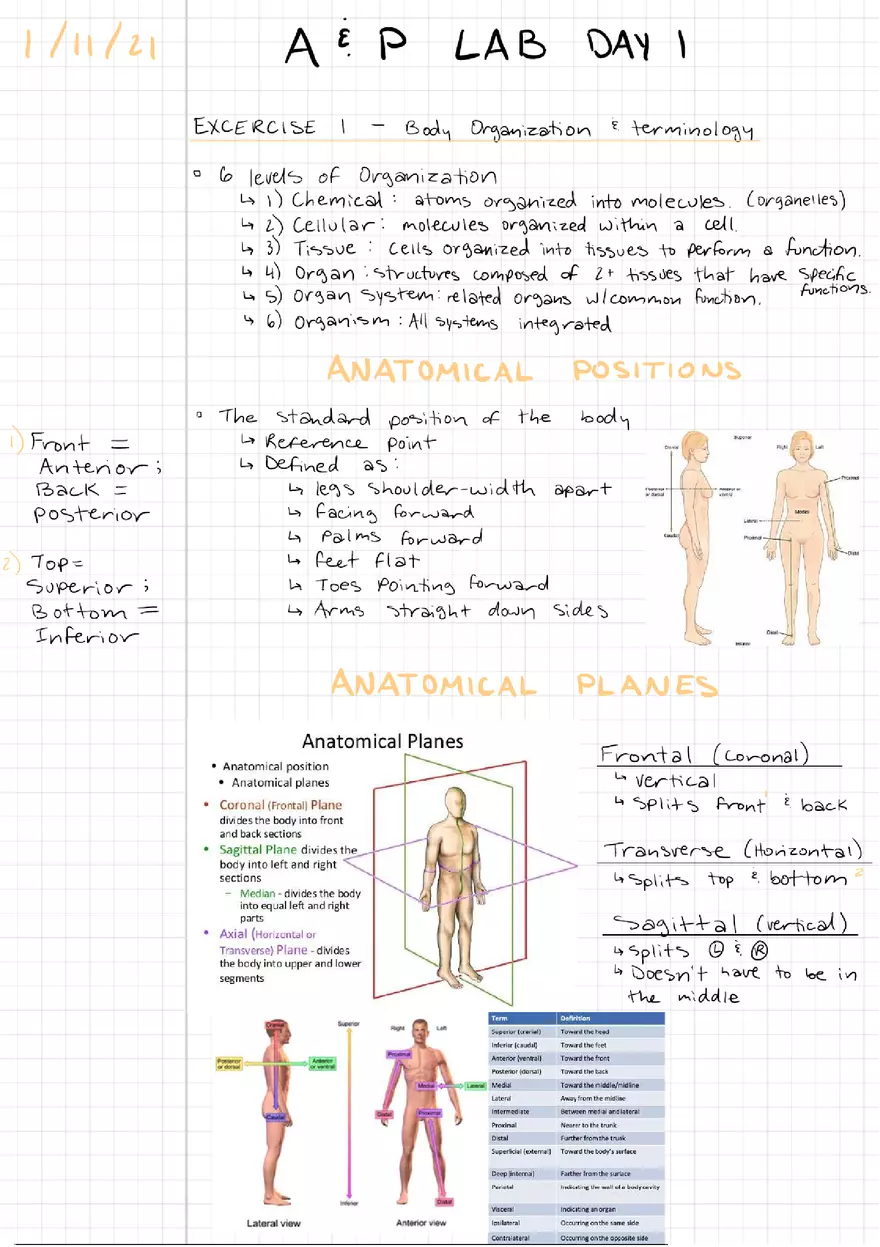 1/11/21
A & P LAB DAY 1
EXCERCISE 1 - Body Organization & terminology
6 levels of Organization
↳ 1) Chemical: atoms organized into molecules. (organelles)
↳ 2) Cellular: molecules organized within a cell.
↳ 3) Tissue: Cells organized into tissues to perform a function.
↳ 4) Organ: structures composed of 2+ tissues that have specific
functions.
↳ 5) Organ System: related organs w/common function.
↳ 6) Organism: All systems integrated
ANATOMICAL POSITIONS
1) Front =
Anterior;
Back =
posterior
2) Top=
Superior;
Bottom =
Inferior
The standard position of the body
↳ Reference point
↳ Defined as:
↳ legs shoulder-width apart
↳ facing forward
↳ Palms forward
↳ feet flat
↳ Toes pointing forward
↳ Arms straight down sides
Cranial
Superior
Right
Left
Posterior
or dorsal
Anterior or
ventral
Proximal
Medial
Lateral
Caudal
Proximal
Distal
Distal
Inferior
ANATOMICAL PLANES
Anatomical Planes
• Anatomical position
• Anatomical planes
• Coronal (Frontal) Plane
divides the body into front
and back sections
• Sagittal Plane divides the
body into left and right
sections
– Median - divides the body
into equal left and right
parts
• Axial (Horizontal or
Transverse) Plane - divides
the body into upper and lower
segments
Frontal (Coronal)
↳ vertical
↳ Splits front 1 & back
Transverse (Horizontal)
↳ Splits top & bottom 2
Sagittal (vertical)
↳ Splits Ⓛ & Ⓡ
↳ Doesn't have to be in
the middle
Cranial
Superior
Posterior
or dorsal
Anterior
or ventral
Caudal
Inferior
Lateral view
Right
Left
Proximal
Medial
Lateral
Distal
Proximal
Distal
Anterior view
Term Definition
Superior (cranial) Toward the head
Inferior (caudal) Toward the feet
Anterior (ventral) Toward the front
Posterior (dorsal) Toward the back
Medial Toward the middle/midline
Lateral Away from the midline
Intermediate Between medial and lateral
Proximal Nearer to the trunk
Distal Further from the trunk
Superficial (external) Toward the body's surface
Deep (internal) Farther from the surface
Parietal Indicating the wall of a body cavity
Visceral Indicating an organ
Ipsilateral Occurring on the same side
Contralateral Occurring on the opposite side